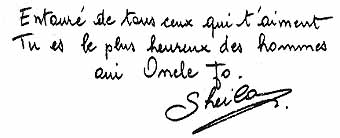 Entouré de tous ceux qui t'aiment
Tu es le plus heureux des hommes
oui Oncle Jo.
Sheila.